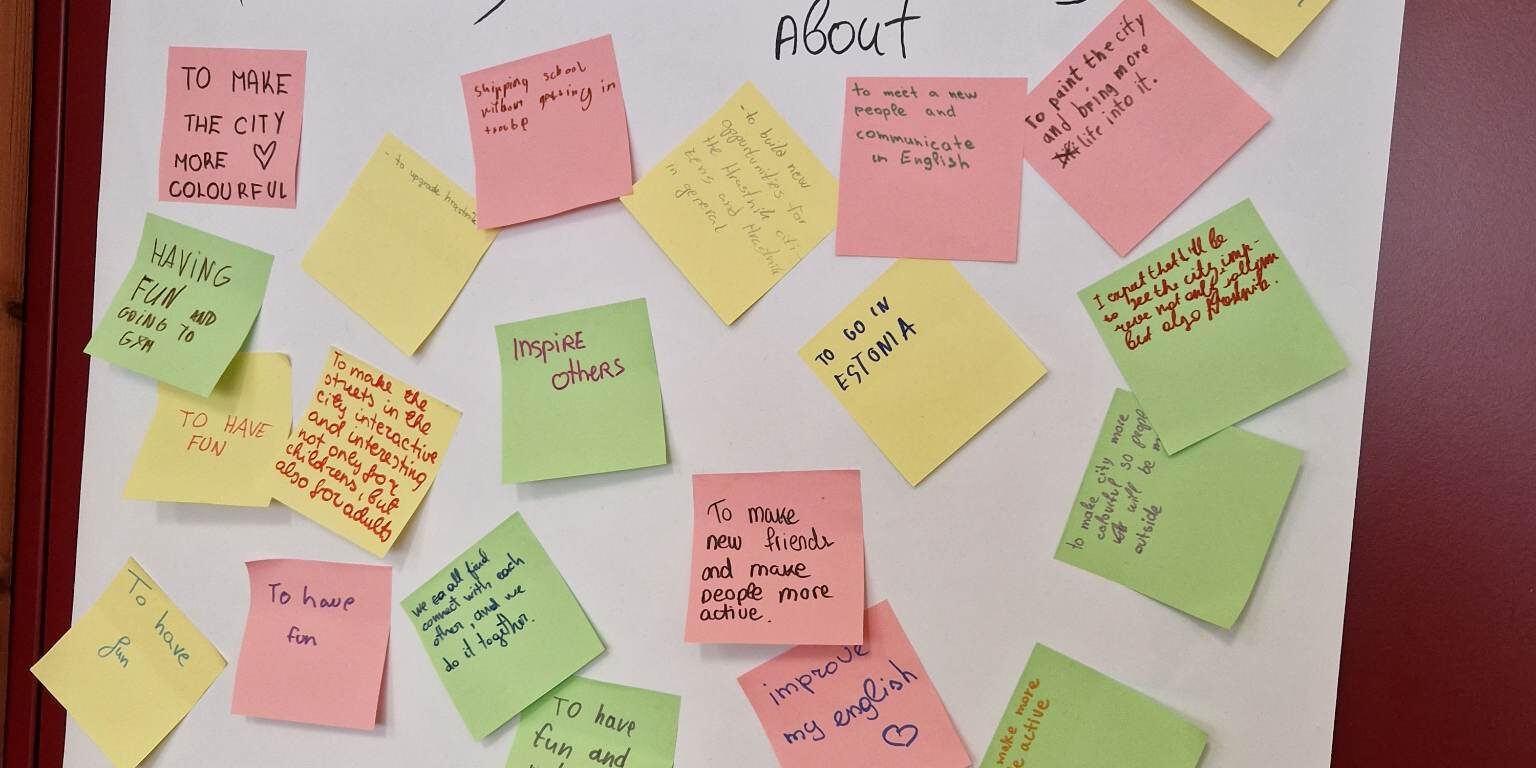 ABOUT
TO MAKE
THE CITY
MORE ♡
COLOURFUL
- to upgrade hrastnik
shipping school
withou getting in
- to build new
opportunities for
the Hrastnik citi-
zens and Hrastnik
in general
to meet a new
people and
communicate
in English
To paint the city
and bring more
life into it.
HAVING
FUN AND
GOING TO
GYM
TO HAVE
FUN
To make the
streets in the
city interactive
and interesting
not only for
childrens, but
also for adults
INSPIRE
others
TO GO IN
ESTONIA
I expect that I will be
to see the city imp-
rove not only
but also Hrastnik.
to make city more
colourful so people
will be
outside
To have
fun
To have
fun
we all find
connect with each
other, and we
do it together.
To make
new friends
and make
people more
active.
TO have
fun and
improve
my english
♡
make more
active